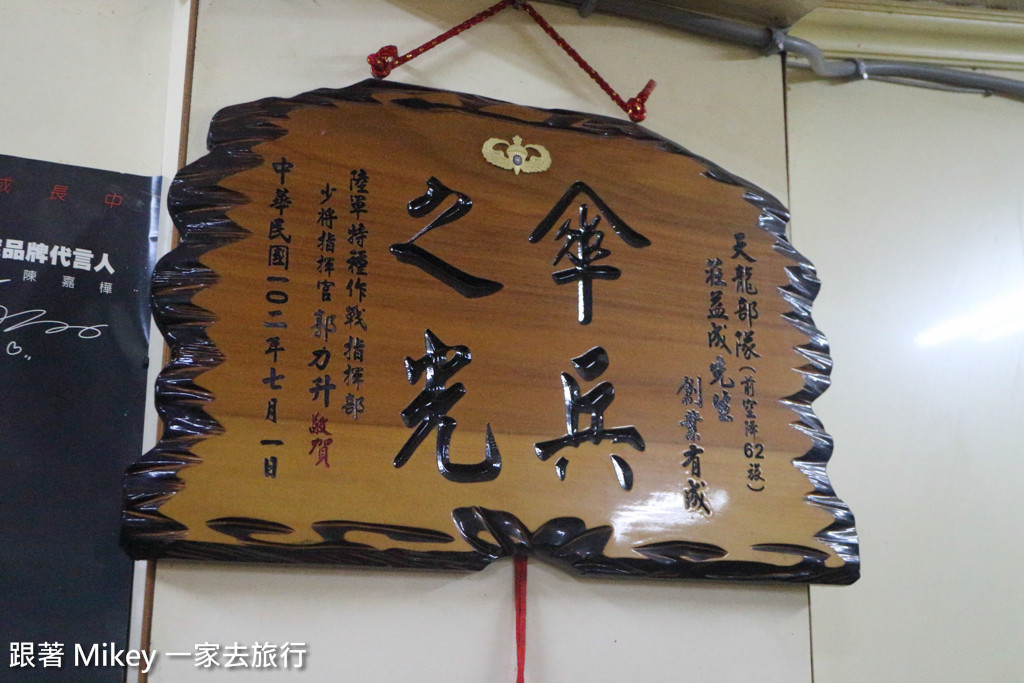 天龍部隊(前空降62旅)
莊益成先生
創業有成
傘兵
之光
陸軍特種作戰指揮部
少將指揮官 郭力升 敬賀
中華民國一〇二年七月一日
中長成
品牌代言人
陳嘉樺
跟著 Mikey 一家去旅行